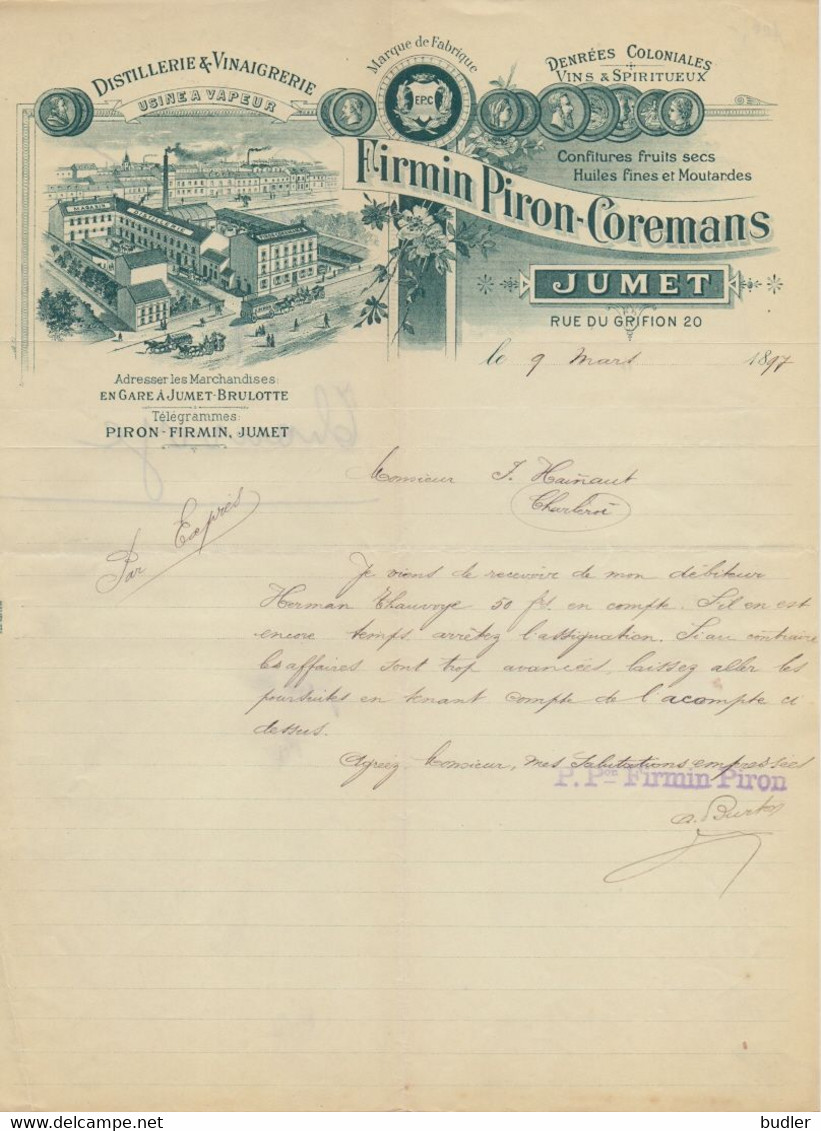 DISTILLERIE & VINAIGRERIE
USINE A VAPEUR
Marque de Fabrique
EPC
DENRÉES COLONIALES
VINS & SPIRITUEUX
Confitures fruits secs
Huiles fines et Moutardes
Firmin Piron-Coremans
JUMET
RUE DU GRIFION 20
DISTILLERIE
Adresser les Marchandises:
EN GARE À JUMET-BRULOTTE
Télégrammes:
PIRON-FIRMIN, JUMET
le 9 Mars 1897
Monsieur J. Hainaut
Charleroi
Par Exprès
Je viens de recevoir de mon débiteur
Herman Thauvoye 50 frs. en compte. S'il en est
encore temps arrêtez l'assignation. Si au contraire
les affaires sont trop avancées, laissez aller les
poursuites en tenant compte de l'acompte ci
dessus.
Agréez, Monsieur, mes salutations empressées
P. Pon Firmin Piron
budler